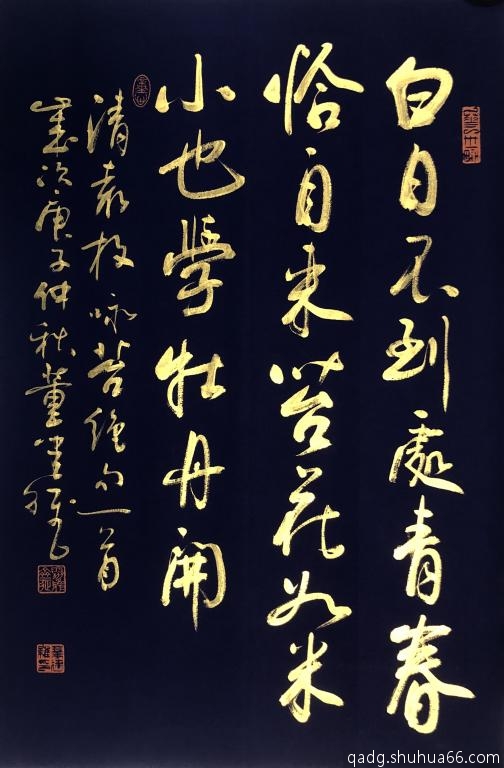 白日不到處青春
恰自來苔花如米
小也學牡丹開
清袁枚咏苔绝句一首
歲次庚子仲秋董
qadg.shuhua66.com